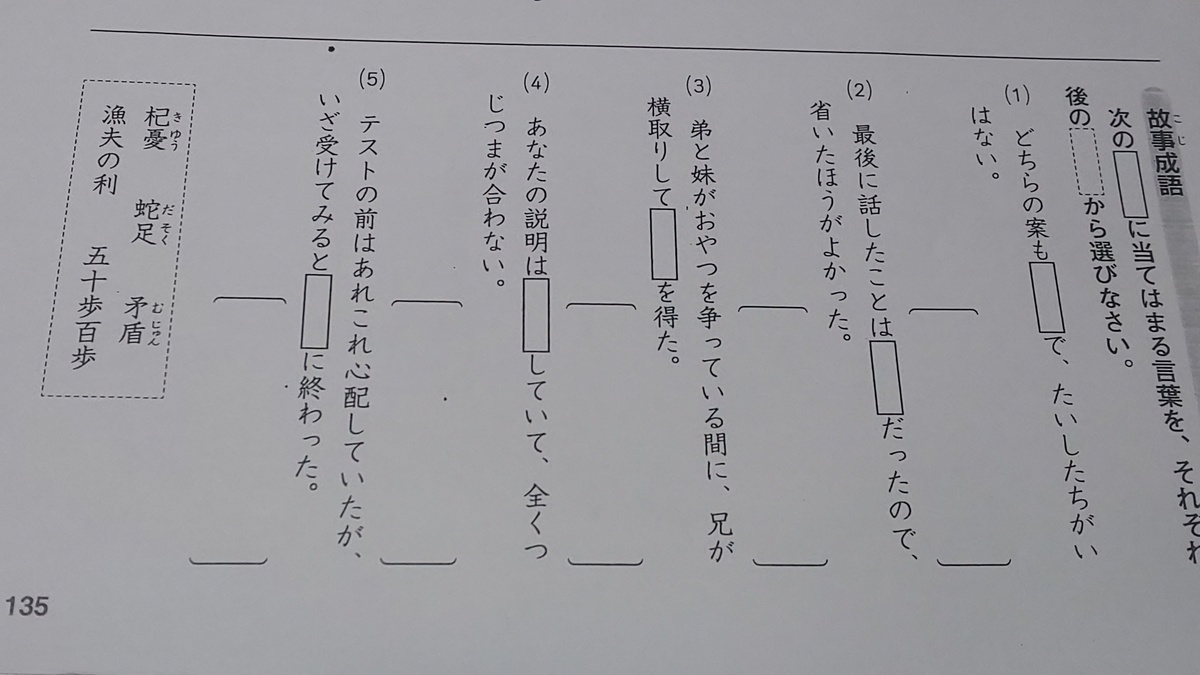 故事成語
こじ
次の□に当てはまる言葉を、それぞれ
後の□から選びなさい。
(1) どちらの案も□で、たいしたちがい
はない。
(2) 最後に話したことは□だったので、
省いたほうがよかった。
(3) 弟と妹がおやつを争っている間に、兄が
横取りして□を得た。
(4) あなたの説明は□していて、全くつ
じつまが合わない。
(5) テストの前はあれこれ心配していたが、
いざ受けてみると□に終わった。
杞憂 蛇足 矛盾
きゆう だそく むじゅん
漁夫の利 五十歩百歩
135